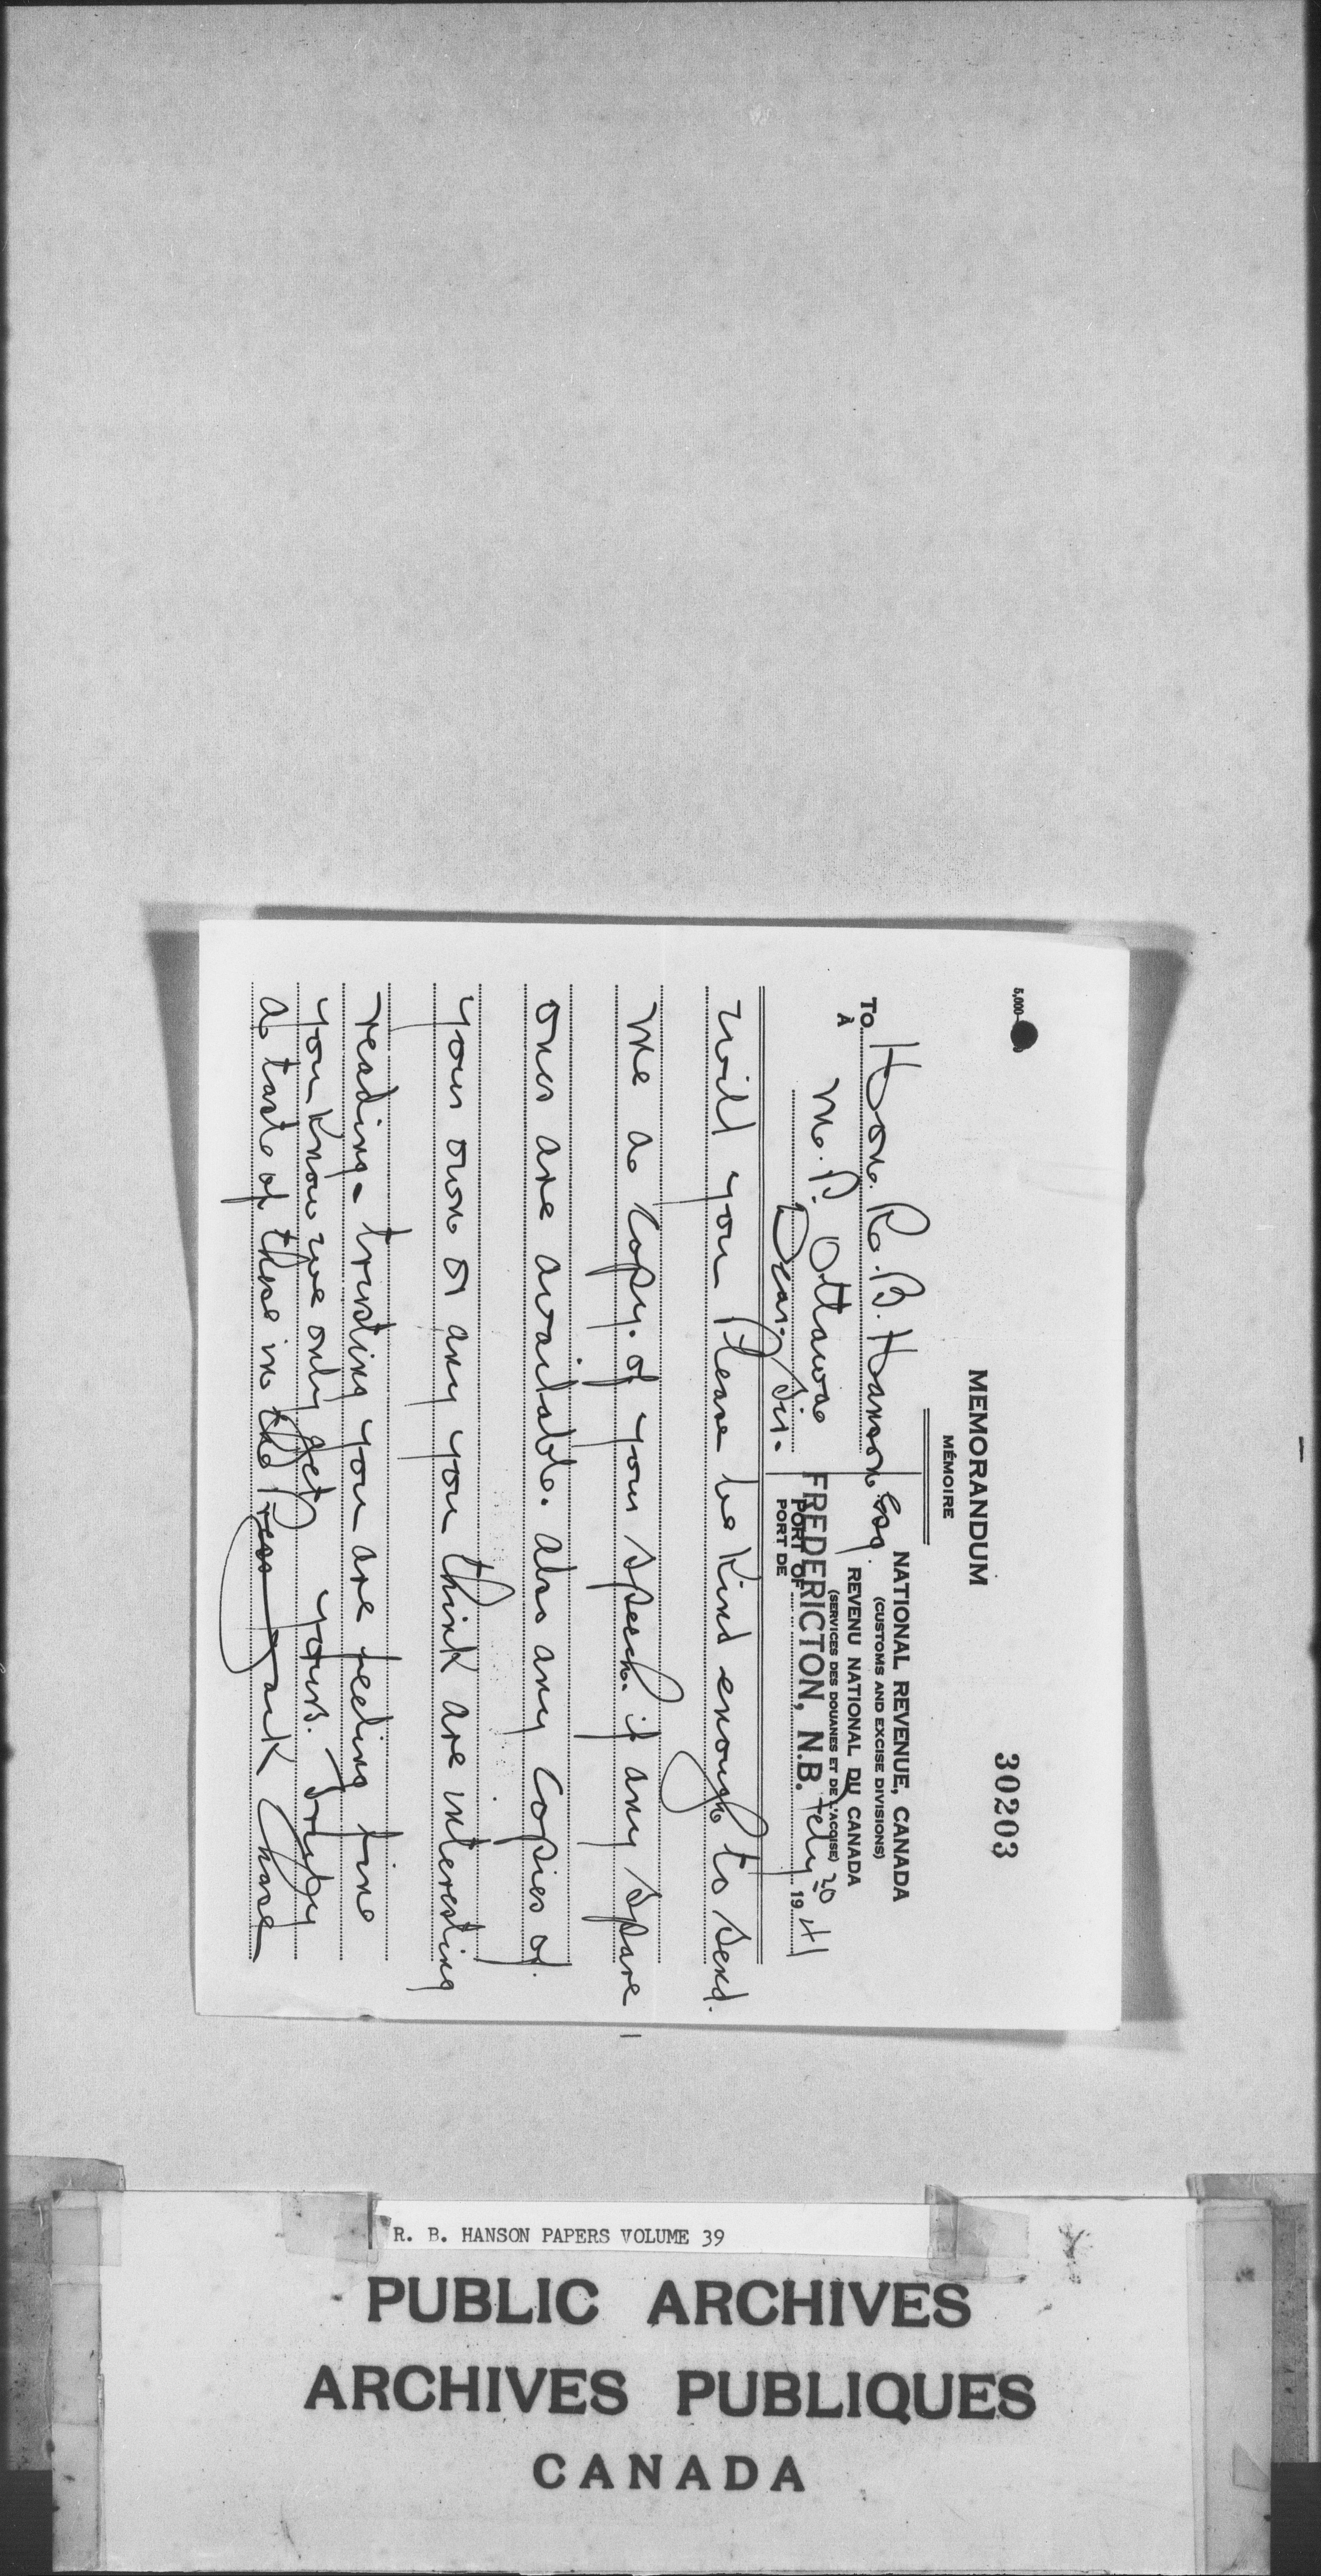 30203
5,000
MEMORANDUM
MÉMOIRE
NATIONAL REVENUE, CANADA
(CUSTOMS AND EXCISE DIVISIONS)
REVENU NATIONAL DU CANADA
(SERVICES DES DOUANES ET DE L'ACCISE)
To Hon. R. B. Hanson Esq.
À
M. P. Ottawa
FREDERICTON, N.B. Feby 20 1941
PORT OF
PORT DE
Dear Sir.
Will you Please be Kind enough to send.
me a Copy. of your speech. if any spare
ones are available. also any Copies of.
your own or any you think are interesting
reading. trusting you are feeling fine
you Know we only get yours. Truly
a taste of these in the Press Jack Chase
R. B. HANSON PAPERS VOLUME 39
PUBLIC ARCHIVES
ARCHIVES PUBLIQUES
CANADA